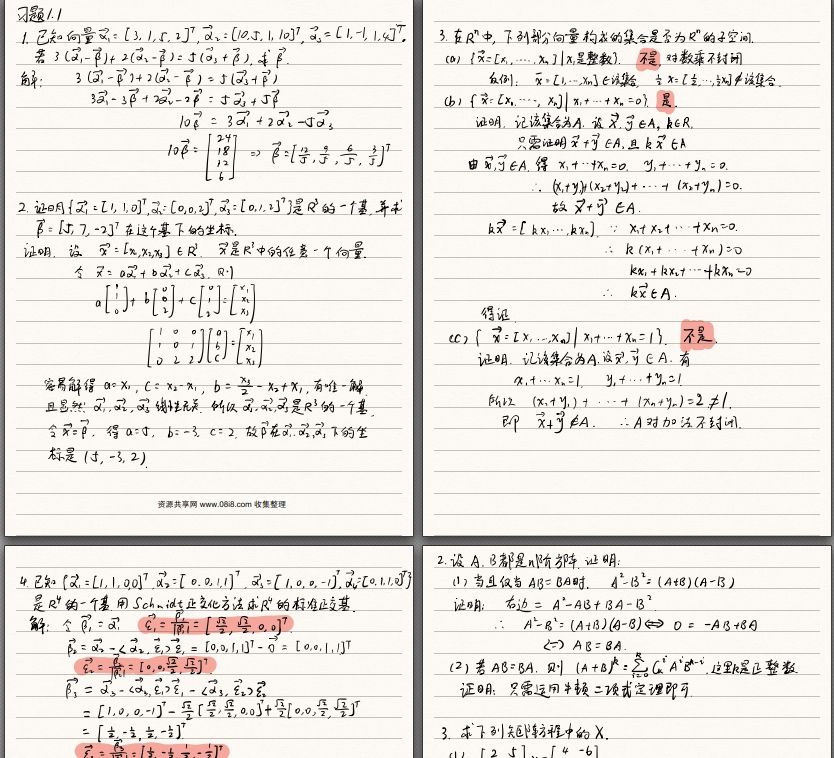 习题1.1
1. 已知向量 α⃗₁=[3,1,5,2]ᵀ, α⃗₂=[10,5,1,10]ᵀ, α⃗₃=[1,-1,1,4]ᵀ.
若 3(α⃗₁-β⃗)+2(α⃗₂-β⃗)=5(α⃗₃+β⃗), 求β⃗.
解: 3(α⃗₁-β⃗)+2(α⃗₂-β⃗)=5(α⃗₃+β⃗)
3α⃗₁-3β⃗+2α⃗₂-2β⃗=5α⃗₃+5β⃗
10β⃗ = 3α⃗₁+2α⃗₂-5α⃗₃
10β⃗ = [24 18 12 6] ⇒ β⃗=[12/5, 9/5, 6/5, 3/5]ᵀ
2. 证明{α⃗₁=[1,1,0]ᵀ, α⃗₂=[0,0,2]ᵀ, α⃗₃=[0,1,2]ᵀ}是R³的一个基, 并求
β⃗=[5,7,-2]ᵀ在这个基下的坐标.
证明. 设 x⃗=[x₁,x₂,x₃]∈R³. x⃗是R³中的任意一个向量.
令 x⃗=aα⃗₁+bα⃗₂+cα⃗₃. 则
a[1 1 0]+b[0 0 2]+c[0 1 2]=[x₁ x₂ x₃]
[1 0 0
1 0 1
0 2 2][a b c]=[x₁ x₂ x₃]
容易解得 a=x₁, c=x₂-x₁, b=x₃/2-x₂+x₁, 有唯一解
且显然 α⃗₁,α⃗₂,α⃗₃线性无关. 所以α⃗₁,α⃗₂,α⃗₃是R³的一个基.
令x⃗=β⃗, 得 a=5, b=-3, c=2. 故β⃗在α⃗₁,α⃗₂,α⃗₃下的坐
标是(5,-3,2).
资源共享网 www.08i8.com 收集整理
3. 在Rⁿ中, 下列部分向量构成的集合是否为Rⁿ的子空间.
(a) {x⃗=[x₁,…,xₙ]|xᵢ是整数}. 不是, 对数乘不封闭
反例: x⃗=[1,…,xₙ]∈该集合, ½x⃗=[½,…,½xₙ]∉该集合.
(b) {x⃗=[x₁,…,xₙ]|x₁+…+xₙ=0}. 是
证明. 记该集合为A. 设x⃗,y⃗∈A, k∈R.
只需证明x⃗+y⃗∈A, 且kx⃗∈A
由x⃗,y⃗∈A, 得 x₁+…+xₙ=0, y₁+…+yₙ=0.
∴ (x₁+y₁)+(x₂+y₂)+…+(xₙ+yₙ)=0.
故x⃗+y⃗∈A.
kx⃗=[kx₁,…,kxₙ]. ∵ x₁+x₂+…+xₙ=0.
∴ k(x₁+…+xₙ)=0
kx₁+kx₂+…+kxₙ=0
∴ kx⃗∈A.
得证.
(c) {x⃗=[x₁,…,xₙ]|x₁+…+xₙ=1}. 不是
证明. 记该集合为A. 设x⃗,y⃗∈A. 有
x₁+…xₙ=1, y₁+…+yₙ=1
所以 (x₁+y₁)+…+(xₙ+yₙ)=2≠1.
即 x⃗+y⃗∉A. ∴A对加法不封闭.
4. 已知{α⃗₁=[1,1,0,0]ᵀ, α⃗₂=[0,0,1,1]ᵀ, α⃗₃=[1,0,0,-1]ᵀ, α⃗₄=[0,1,1,0]ᵀ}
是R⁴的一个基. 用Schmidt正交化方法求R⁴的标准正交基.
解: 令β⃗₁=α⃗₁ ε⃗₁=β⃗₁/|β⃗₁|=[√2/2,√2/2,0,0]ᵀ
β⃗₂=α⃗₂-<α⃗₂,ε⃗₁>ε⃗₁=[0,0,1,1]ᵀ-0⃗=[0,0,1,1]ᵀ
ε⃗₂=β⃗₂/|β⃗₂|=[0,0,√2/2,√2/2]ᵀ
β⃗₃=α⃗₃-<α⃗₃,ε⃗₁>ε⃗₁-<α⃗₃,ε⃗₂>ε⃗₂
=[1,0,0,-1]ᵀ-√2/2[√2/2,√2/2,0,0]ᵀ+√2/2[0,0,√2/2,√2/2]ᵀ
=[½,-½,½,-½]ᵀ
ε⃗₃=β⃗₃/|β⃗₃|=[½,-½,½,-½]ᵀ
2. 设A.B都是n阶方阵. 证明:
(1) 当且仅当AB=BA时, A²-B²=(A+B)(A-B)
证明: 右边=A²-AB+BA-B².
∴ A²-B²=(A+B)(A-B)⇔0=-AB+BA
⇔AB=BA.
(2) 若AB=BA. 则 (A+B)ᵏ=∑ᵢ₌₀ᵏ Cₖⁱ AⁱBᵏ⁻ⁱ. 这里k是正整数
证明: 只需运用牛顿二项式定理即可.
3. 求下列矩阵方程中的X.
(1) [2 5] [4 -6]